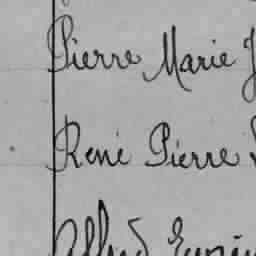 Pierre Marie J
René Pierre
Alfred Eugén